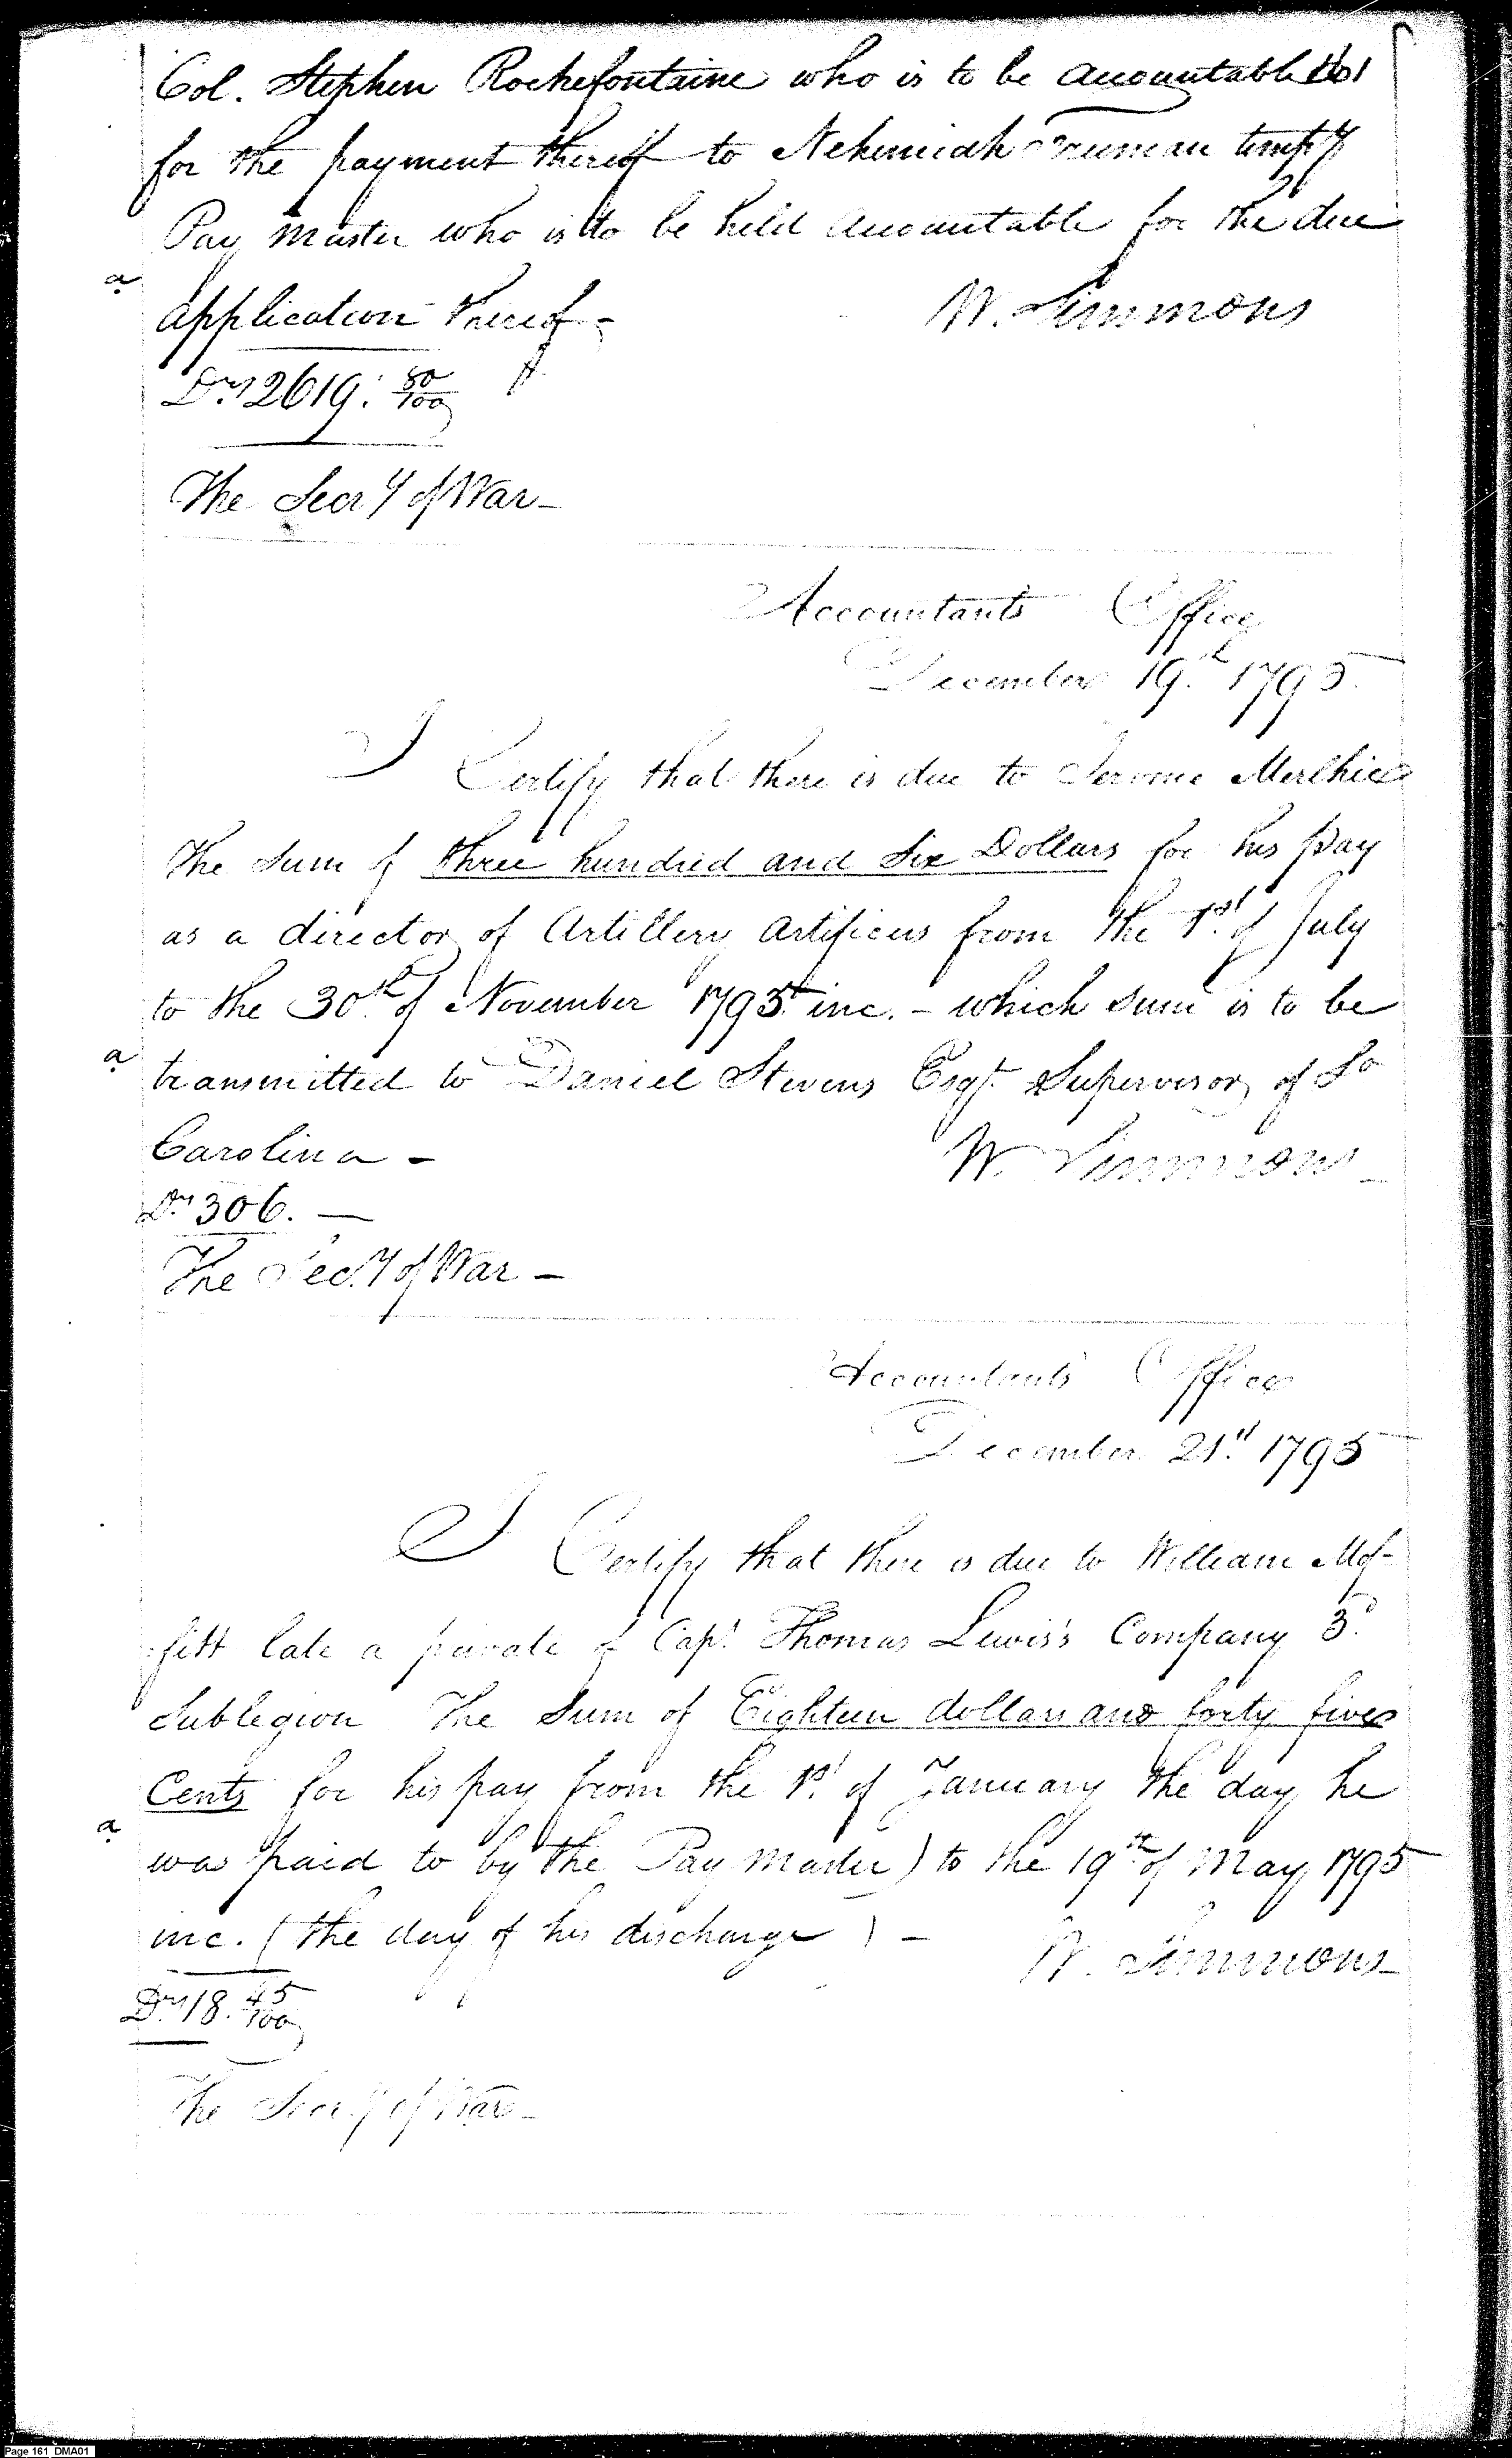 Col. Stephen Rochefontaine who is to be accountable 161
for the payment thereof to Nehemiah Freeman temp.y
Pay Master who is to be held accountable for the due
a
application thereof -
W. Simmons
Drs 2619. 80/100
The Secr.y of War -
Accountants Office
December 19.th 1795.
I Certify that there is due to Jerome
the Sum of three hundred and Six Dollars for his pay
as a director of Artillery Artificers from the 1.st of July
to the 30.th of November 1795 inc. - which sum is to be
a
transmitted to Daniel Stevens Esqr. Supervisor of So
Carolina -
W. Simmons
Drs 306. —
The Sec.y of War -
Accountants Office
December 21.st 1795
I Certify that there is due to William Mof-
fitt late a private of Cap.t Thomas Lewis's Company 3.d
Sublegion the Sum of Eighteen dollars and forty five
Cents for his pay from the 1.st of January the day he
a
was paid to by the Pay Master) to the 19.th of May 1795
inc. (the day of his discharge) -
W. Simmons
Drs 18. 45/100
The Secr.y of War -
Page 161 DMA01